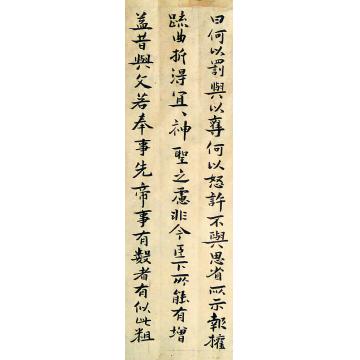 曰何以罰與以奪何以怒許不與思省所示報權
疏曲折得宜、神聖之慮非今臣下所能有增
益昔與文若奉事先帝事有數者有似此粗